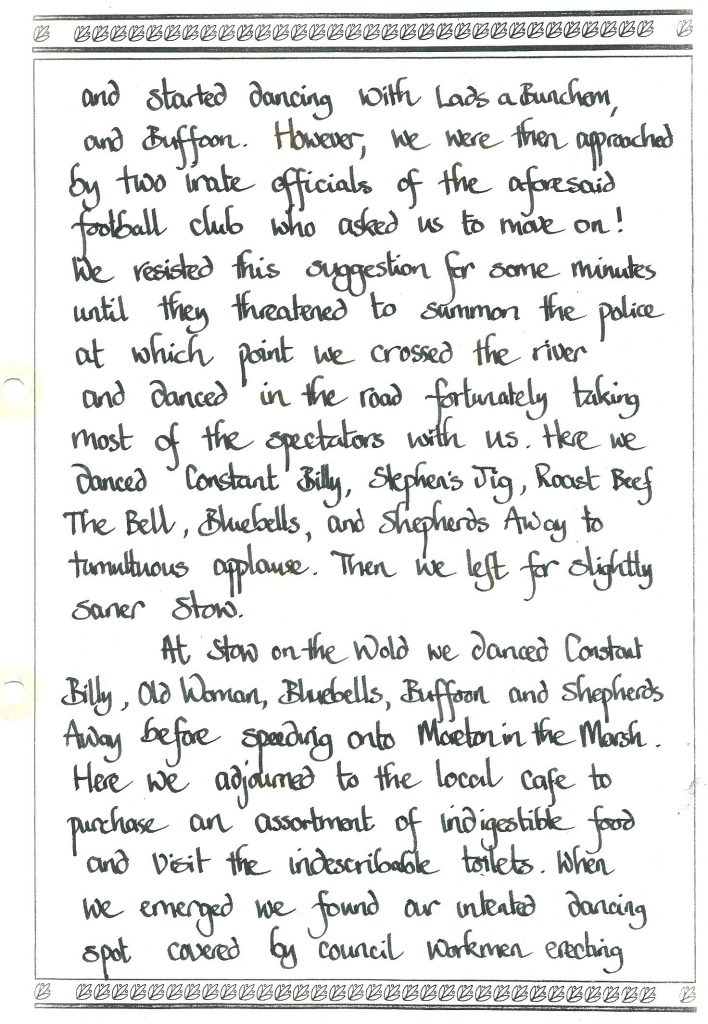 and started dancing with Lads a Bunchem,
and Buffoon. However, we were then approached
by two irate officials of the aforesaid
football club who asked us to move on!
We resisted this suggestion for some minutes
until they threatened to summon the police
at which point we crossed the river
and danced in the road fortunately taking
most of the spectators with us. Here we
danced Constant Billy, Stephen's Jig, Roast Beef
The Bell, Bluebells, and Shepherds Away to
tumultuous applause. Then we left for slightly
saner Stow.
At Stow on-the Wold we danced Constant
Billy, Old Woman, Bluebells, Buffoon and Shepherds
Away before speeding onto Moreton in the Marsh.
Here we adjourned to the local cafe to
purchase an assortment of indigestible food
and visit the indescribable toilets. When
we emerged we found our intented dancing
spot covered by council workmen erecting